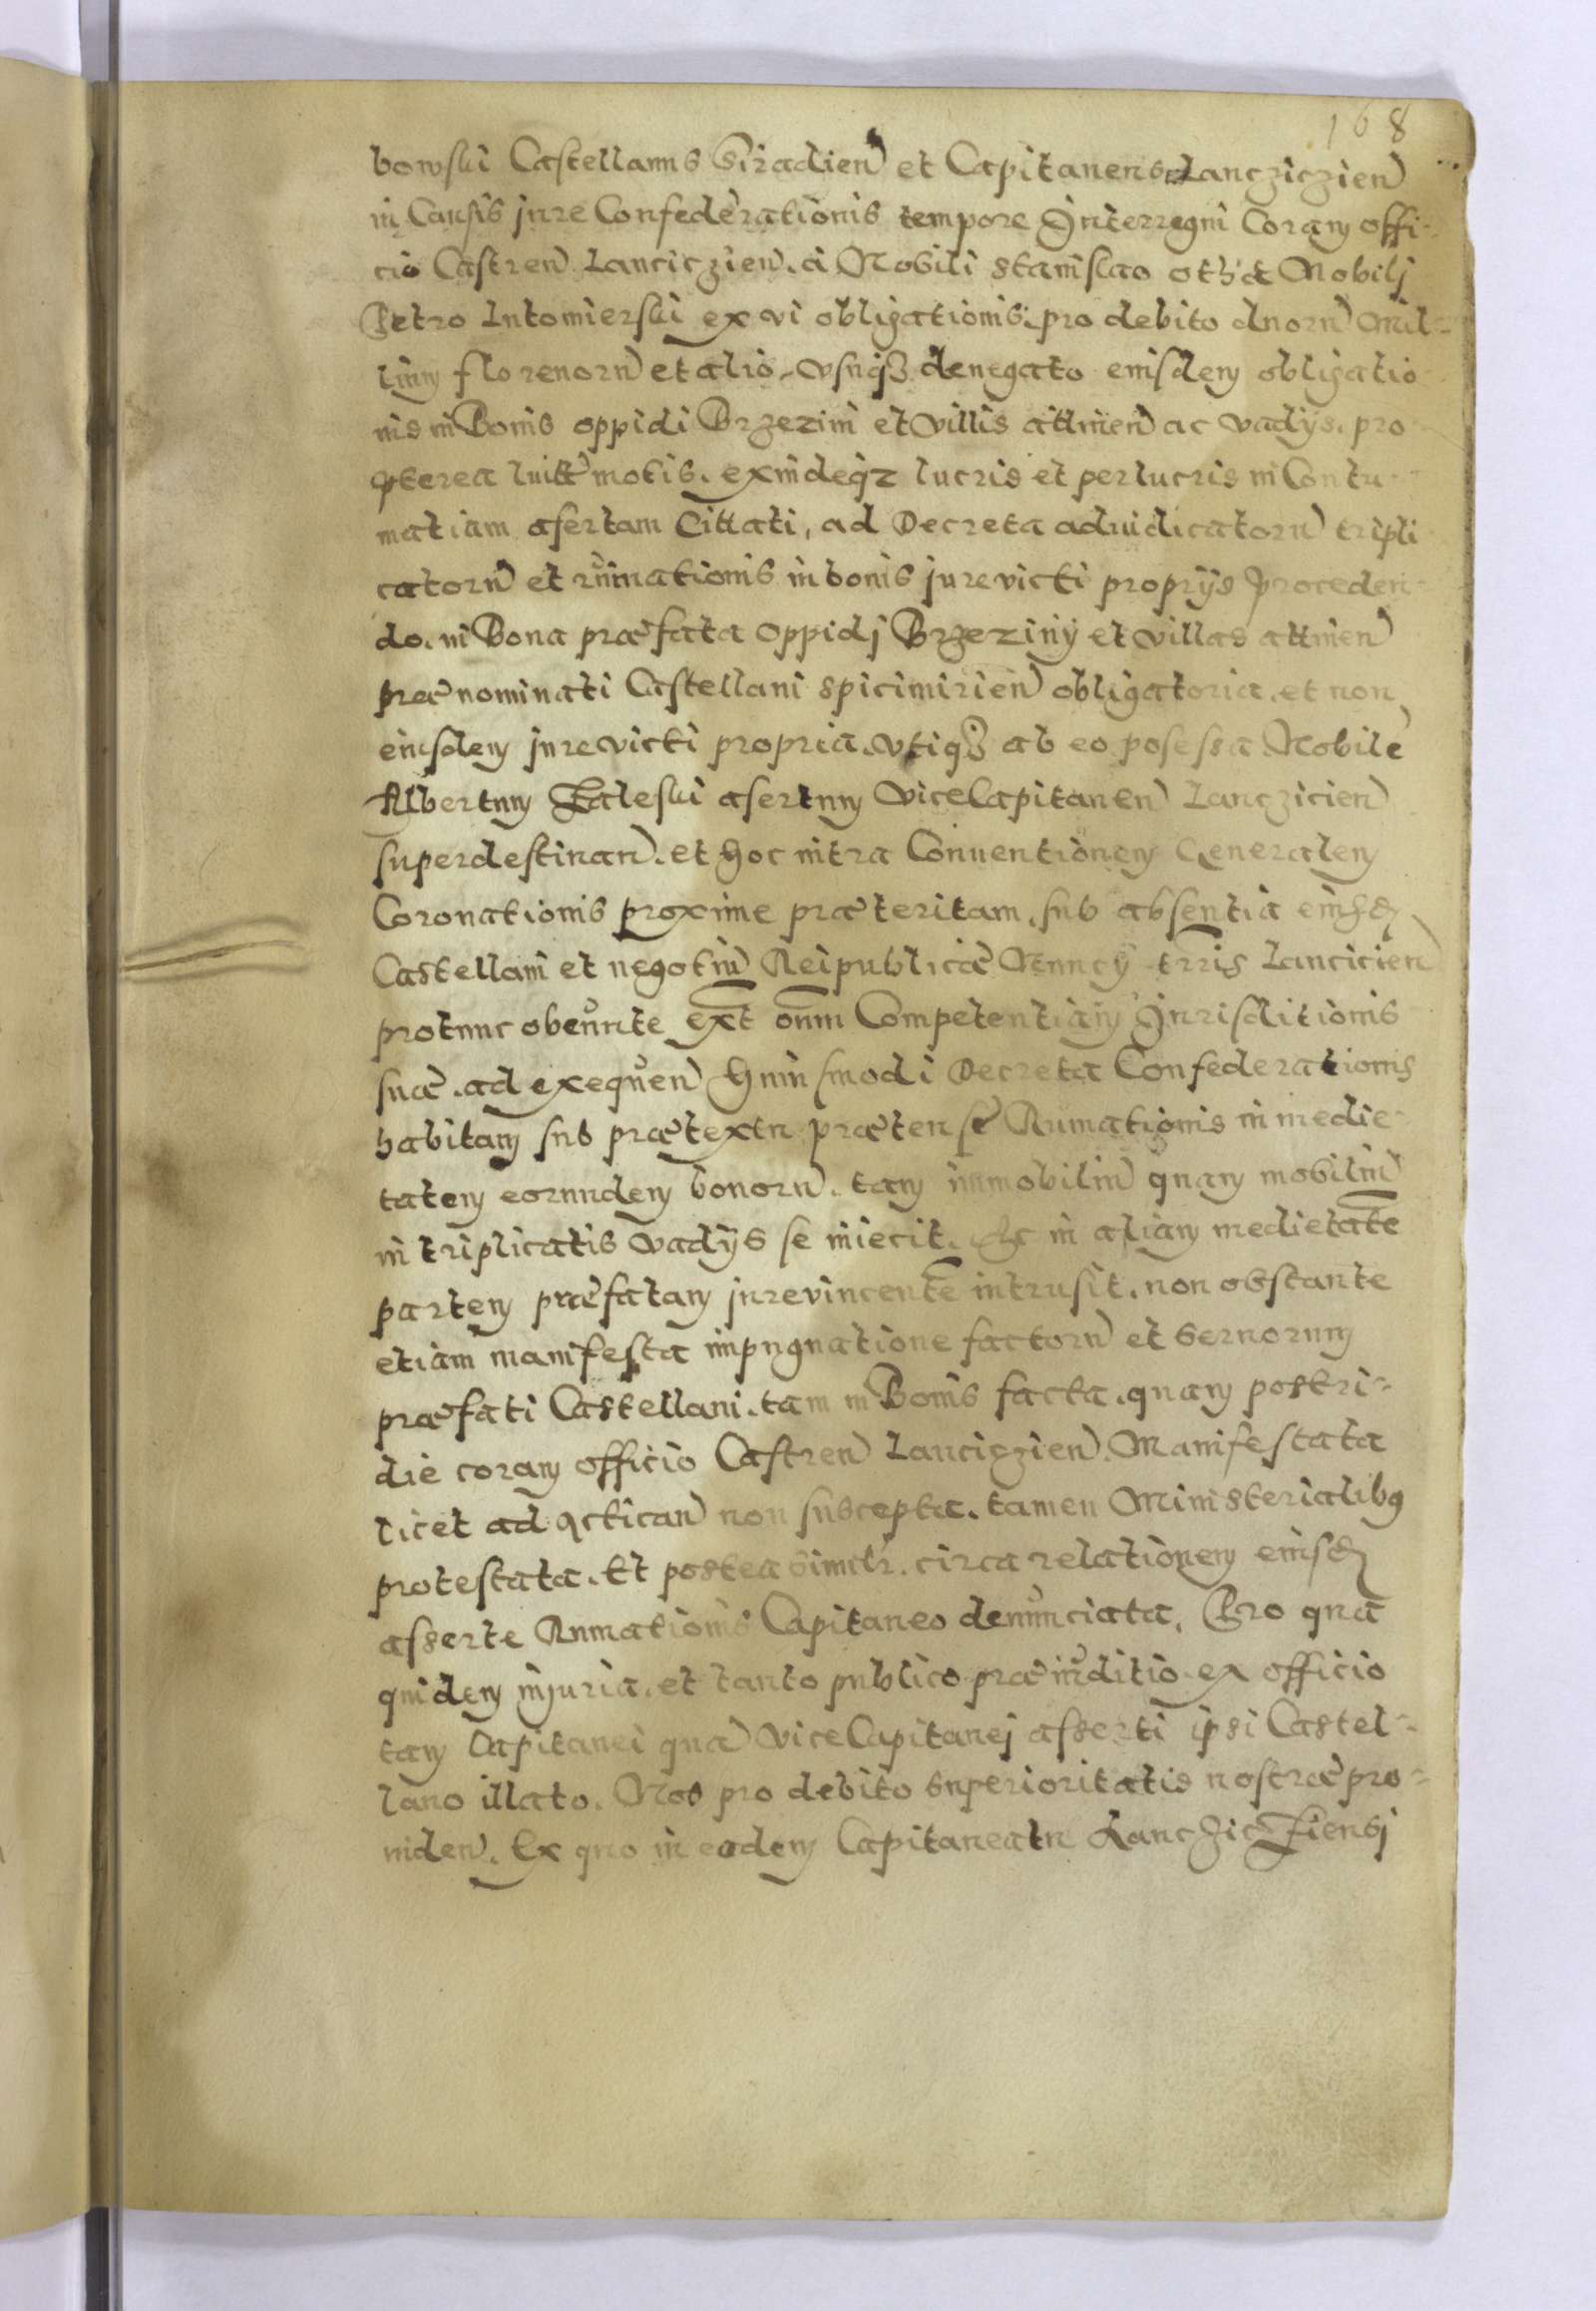 168
bowski Castellanus Siradien et Capitaneus Lancziczien
in Causis jure Confederationis tempore Interregni Coram offi-
cio Castren Lanciczien. a Nobili Stanislao et Nobilj
Petro Lutomierski ex vi obligationis. pro debito duoru Mil-
lium florenoru et alio. vsuqz denegato eiusdem obligatio
nis in Bonis oppidi Brzezini et villis attinen ac vadÿs. pro
pterea luitt motis. exindeqz lucris et perlucris in Contu-
matiam asertam Cittati, ad Decreta adiudicatoru tripli
catoru et rumationis in bonis jurevicti proprÿs proceden-
do. in Bona præfata Oppidj Brzezinÿ et villas attinen
prænominati Castellani Spicimirien obligatoria. et non
eiusdem jurevicti propria. vtiqz ab eo posessa Nobile
Albertum Zaleski asertum ViceCapitaneu Lanczicien
superdestinan. et hoc intra Conuentionem Generalem
Coronationis proxime præteritam. sub absentia eiusd
Castellani et negotiu Reipublicæ Nuncÿ trris Lancicien
protunc obeunte ext onm Competentiam Jurisditionis
suæ. ad exequen huiusmodi Decreta Confederationis
habitam sub prætextu prætense Rumationis in medie-
tatem eorundem bonoru. tam immobiliu quam mobiliu
in triplicatis vadÿs se iniecit. Ac in aliam medietate
partem præfatam jurevincente intrusit. non obstante
etiam manifesta impugnatione factoru et Seruorum
præfati Castellani. tam in Bonis facta. quam postri-
die coram officio Castren Lanciczien. Manifestata
licet ad actican non suscepta. tamen Ministerialibus
protestata. Et postea similr. circa relationem eiusd
asserte Rumationis Capitaneo denunciata, Pro qua
quidem injuria. et tanto publico præiuditio ex officio
tam Capitanei qua ViceCapitanej asserti ipsi Castel-
lano illato. Nos pro debito Superioritatis nostræ pro-
uiden. Ex quo in eodem Capitaneatu Lancziczfiensj